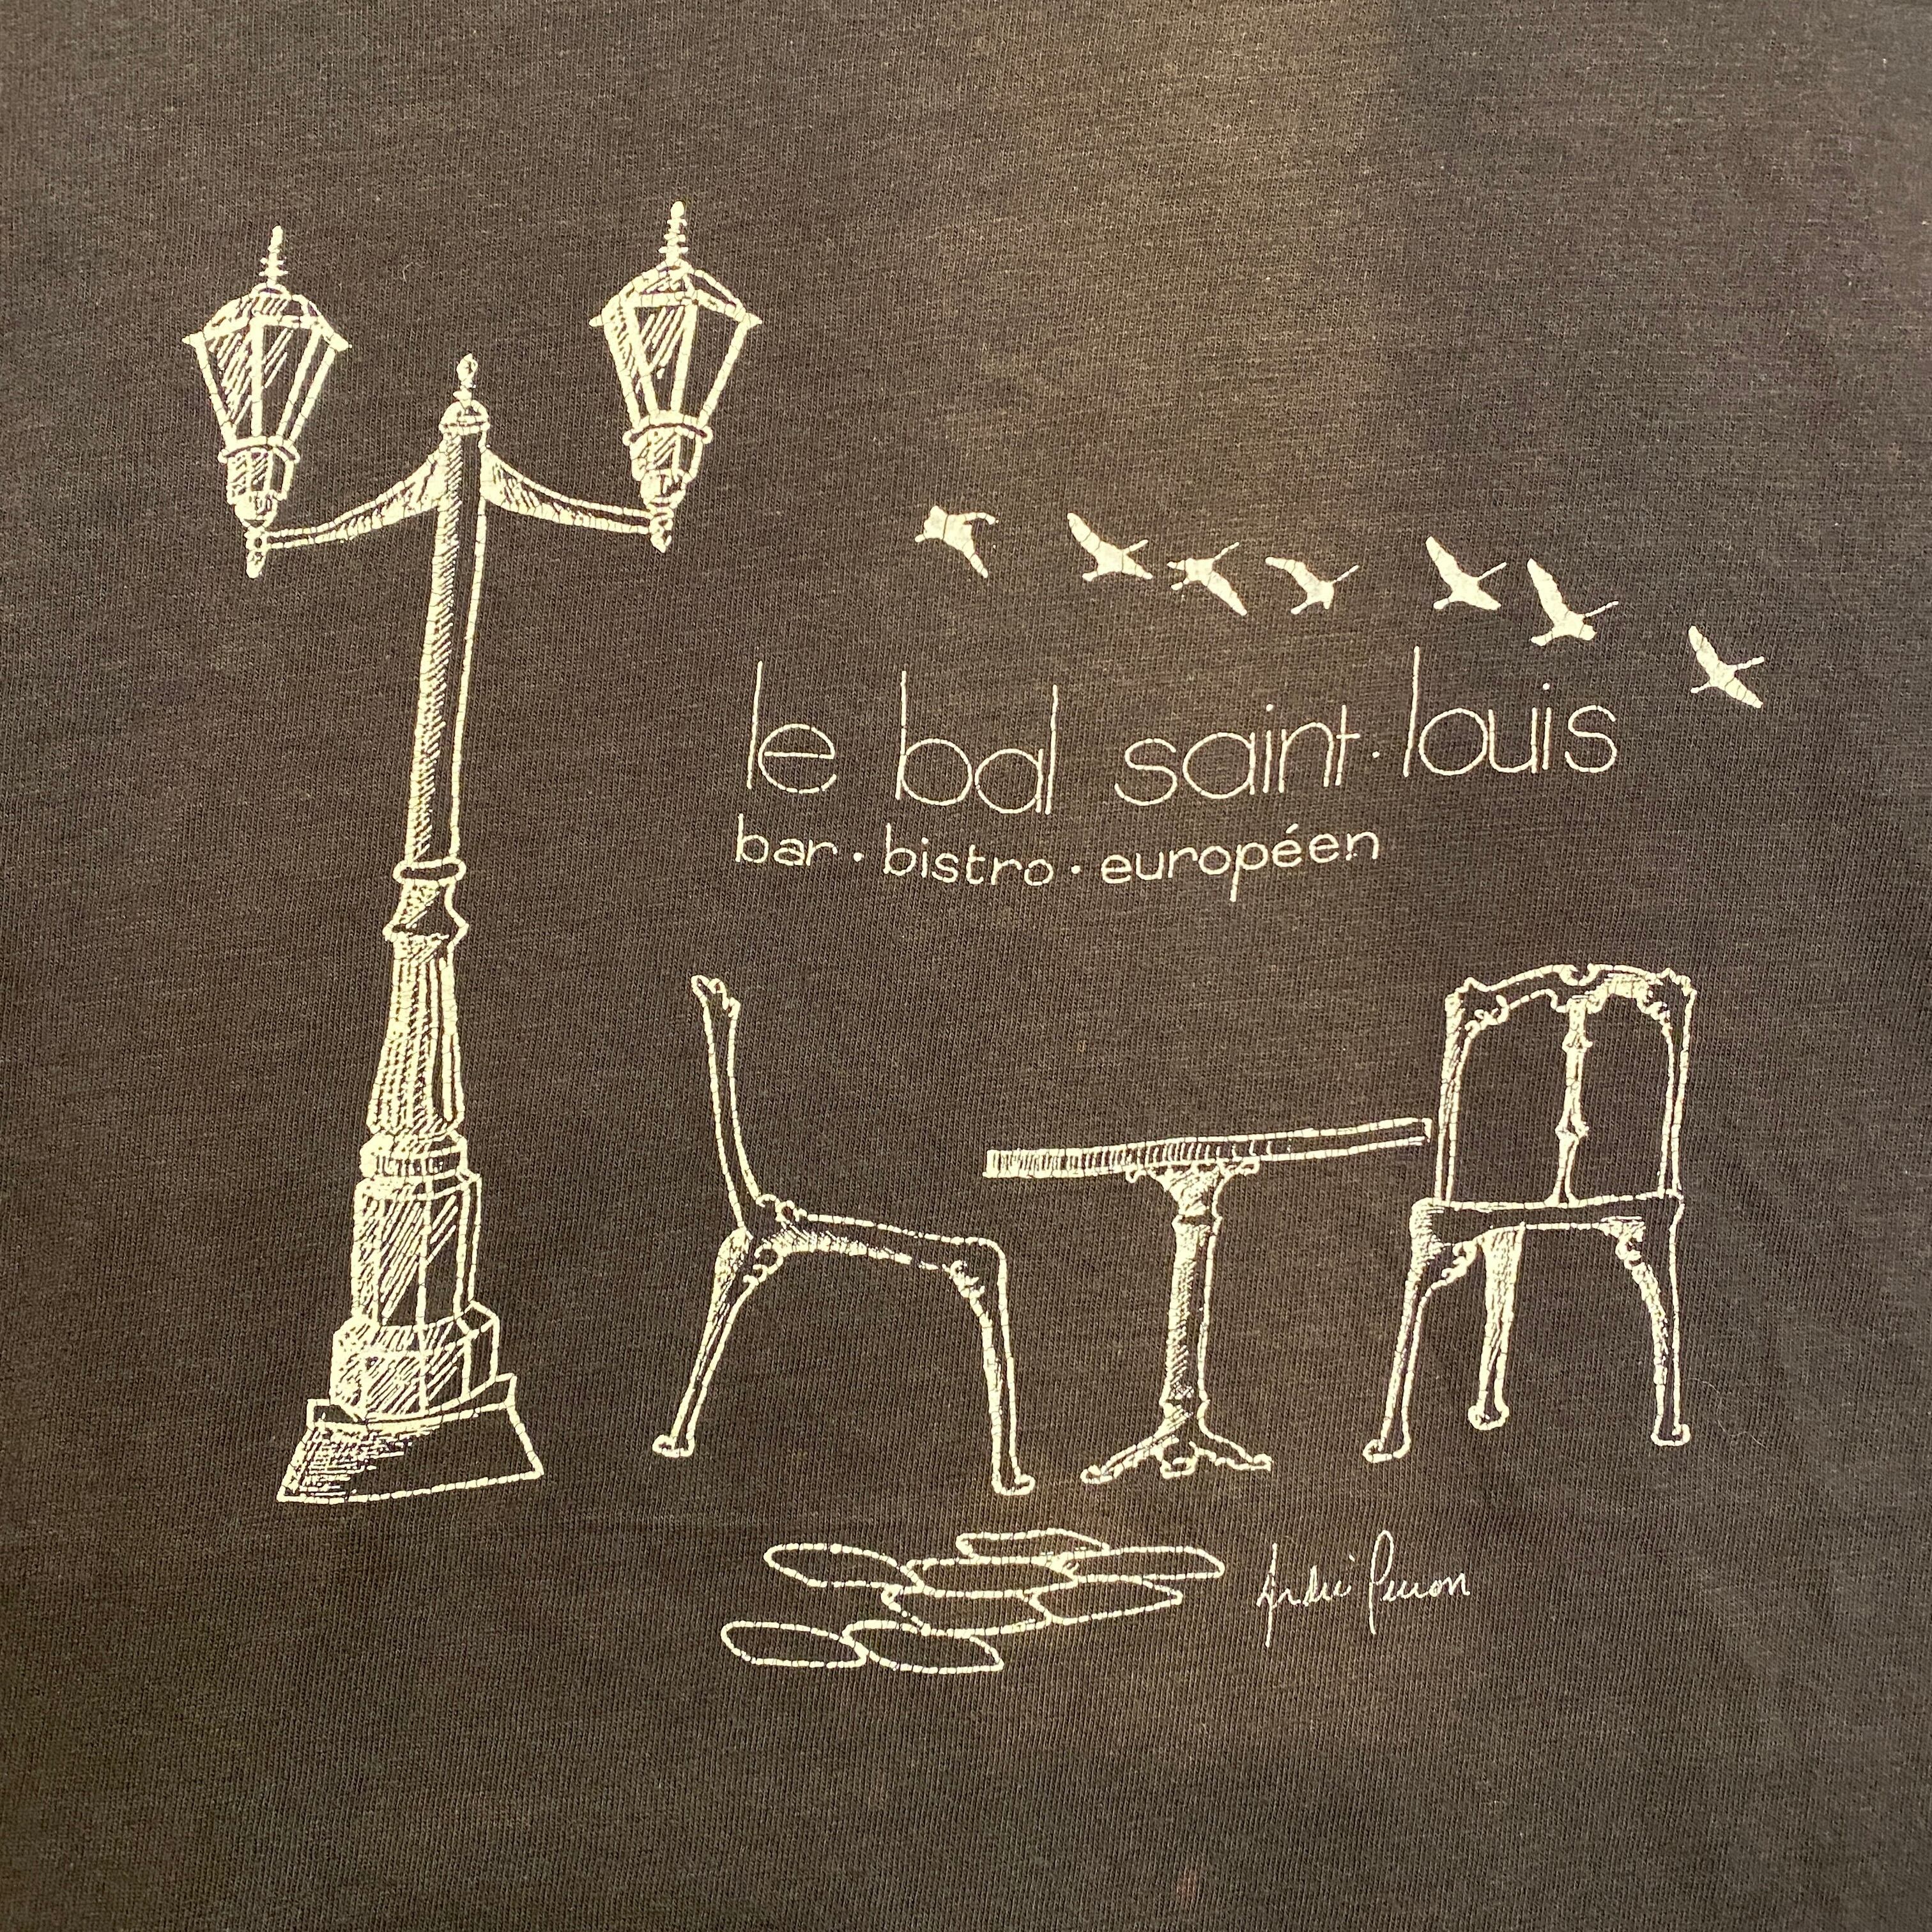 le bal saint·louis
bar·bistro·européen
André Perron